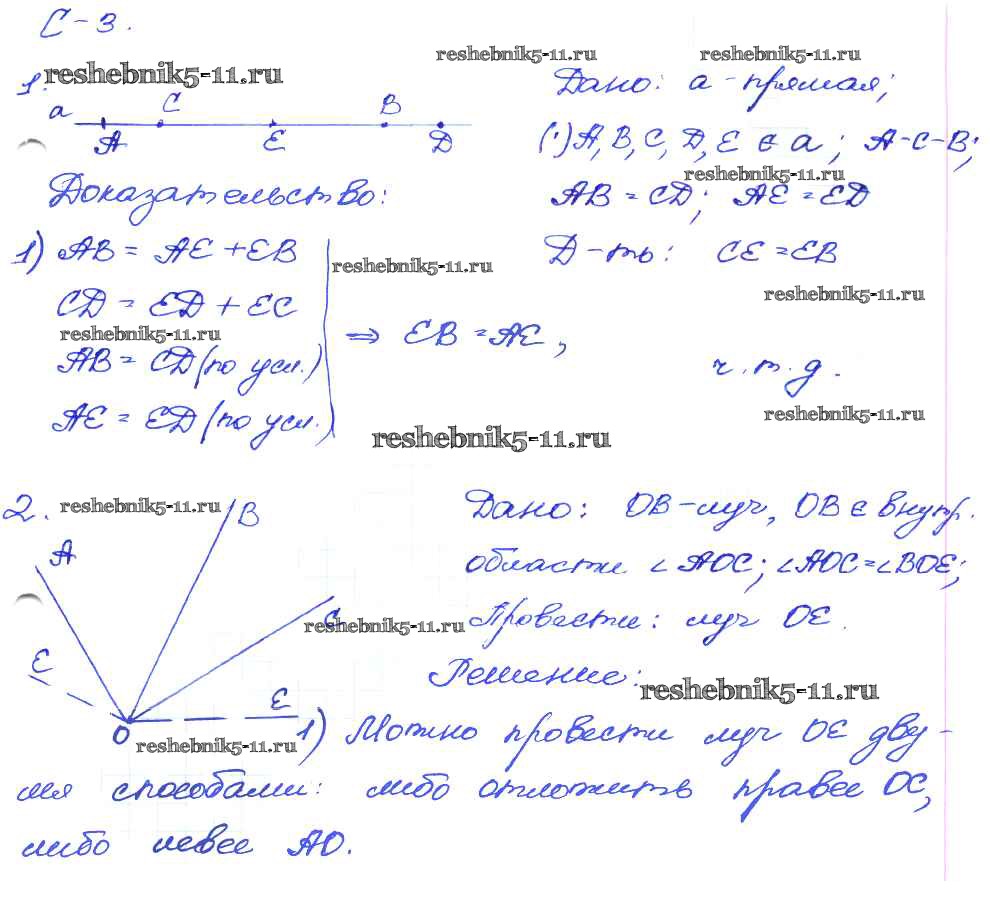 С-3.
reshebnik5-11.ru
reshebnik5-11.ru
reshebnik5-11.ru
1.
a
C
B
A
E
D
Дано: a - прямая;
(·)A, B, C, D, E ∈ a; A-C-B;
reshebnik5-11.ru
AB = CD; AE = ED
Д-ть: CE = EB
reshebnik5-11.ru
Доказательство:
1) AB = AE + EB
reshebnik5-11.ru
CD = ED + EC
reshebnik5-11.ru
AB = CD (по усл.)
AE = ED (по усл.)
⇒ EB = AE,
ч.т.д.
reshebnik5-11.ru
reshebnik5-11.ru
2.
reshebnik5-11.ru
B
A
C
reshebnik5-11.ru
E
E
O
reshebnik5-11.ru
Дано: OB - луч, OB ∈ внутр.
области ∠AOC; ∠AOC = ∠BOE;
Провести: луч OE.
Решение:
reshebnik5-11.ru
1) Можно провести луч OE дву-
мя способами: либо отложить правее OC,
либо левее AO.